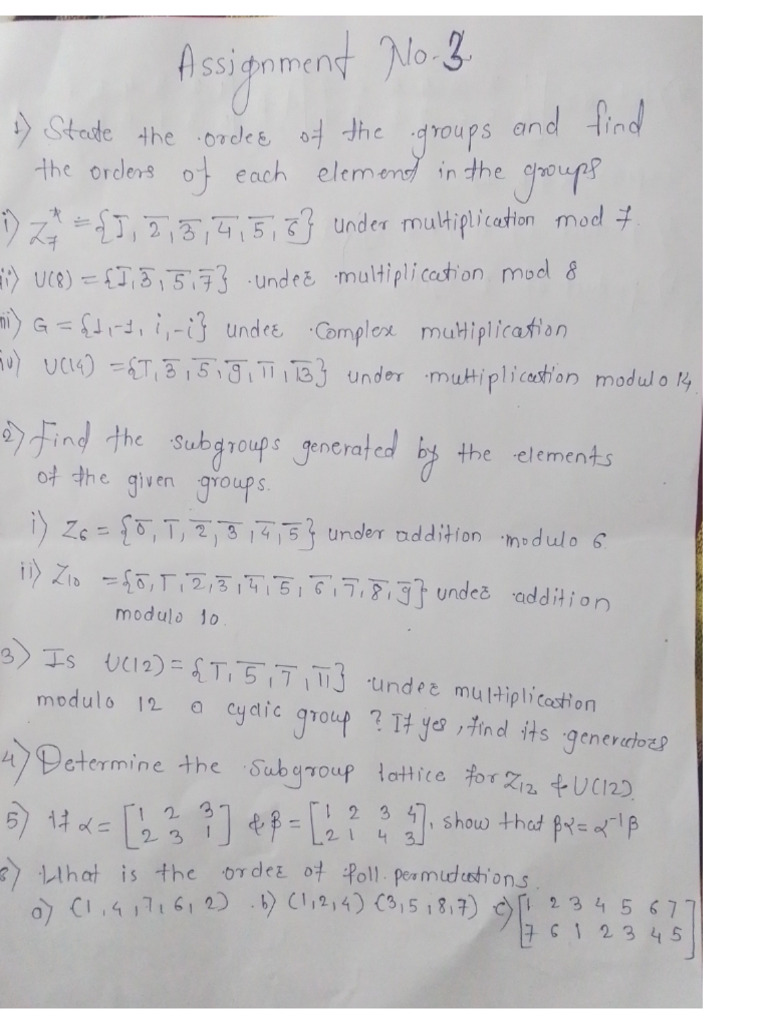 Assignment No. 3
1) State the order of the groups and find
the orders of each element in the groups
i) Z₇* = {1̅, 2̅, 3̅, 4̅, 5̅, 6̅} under multiplication mod 7.
ii) U(8) = {1̅, 3̅, 5̅, 7̅} under multiplication mod 8
iii) G = {1, -1, i, -i} under Complex multiplication
iv) U(14) = {1̅, 3̅, 5̅, 9̅, 1̅1̅, 1̅3̅} under multiplication modulo 14
2) Find the subgroups generated by the elements
of the given groups.
i) Z₆ = {0̅, 1̅, 2̅, 3̅, 4̅, 5̅} under addition modulo 6
ii) Z₁₀ = {0̅, 1̅, 2̅, 3̅, 4̅, 5̅, 6̅, 7̅, 8̅, 9̅} under addition
modulo 10.
3) Is U(12) = {1̅, 5̅, 7̅, 1̅1̅} under multiplication
modulo 12 a cyclic group? If yes, find its generators
4) Determine the Subgroup lattice for Z₁₂ & U(12).
5) If α = [1 2 3
2 3 1] & β = [1 2 3 4
2 1 4 3], show that βα = α⁻¹β
6) What is the order of foll. permutations.
a) (1, 4, 7, 6, 2) b) (1, 2, 4) (3, 5, 8, 7) c) [1 2 3 4 5 6 7
7 6 1 2 3 4 5]